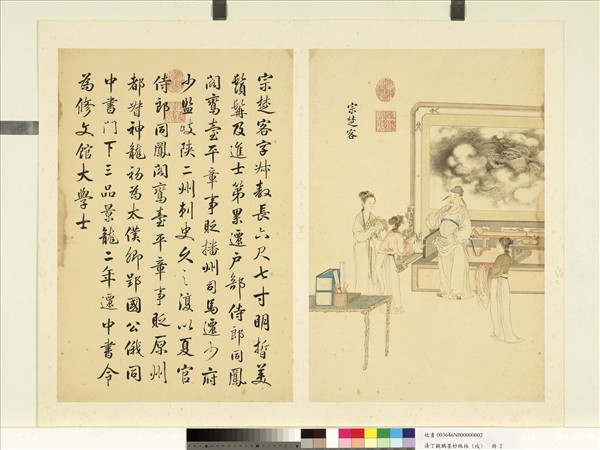 宗楚客
宗楚客字叔敖長六尺七寸明晳美
鬚髯及進士第累遷户部侍郎同鳳
閣鸞臺平章事貶播州司馬遷少府
少監岐陝二州刺史久之復以夏官
侍郎同鳳閣鸞臺平章事貶原州
都督神龍初為太僕卿郢國公俄同
中書門下三品景龍二年遷中書令
為修文館大學士
故畫 003646N000000002
清丁觀鵬墨妙珠林(戌) 冊 2